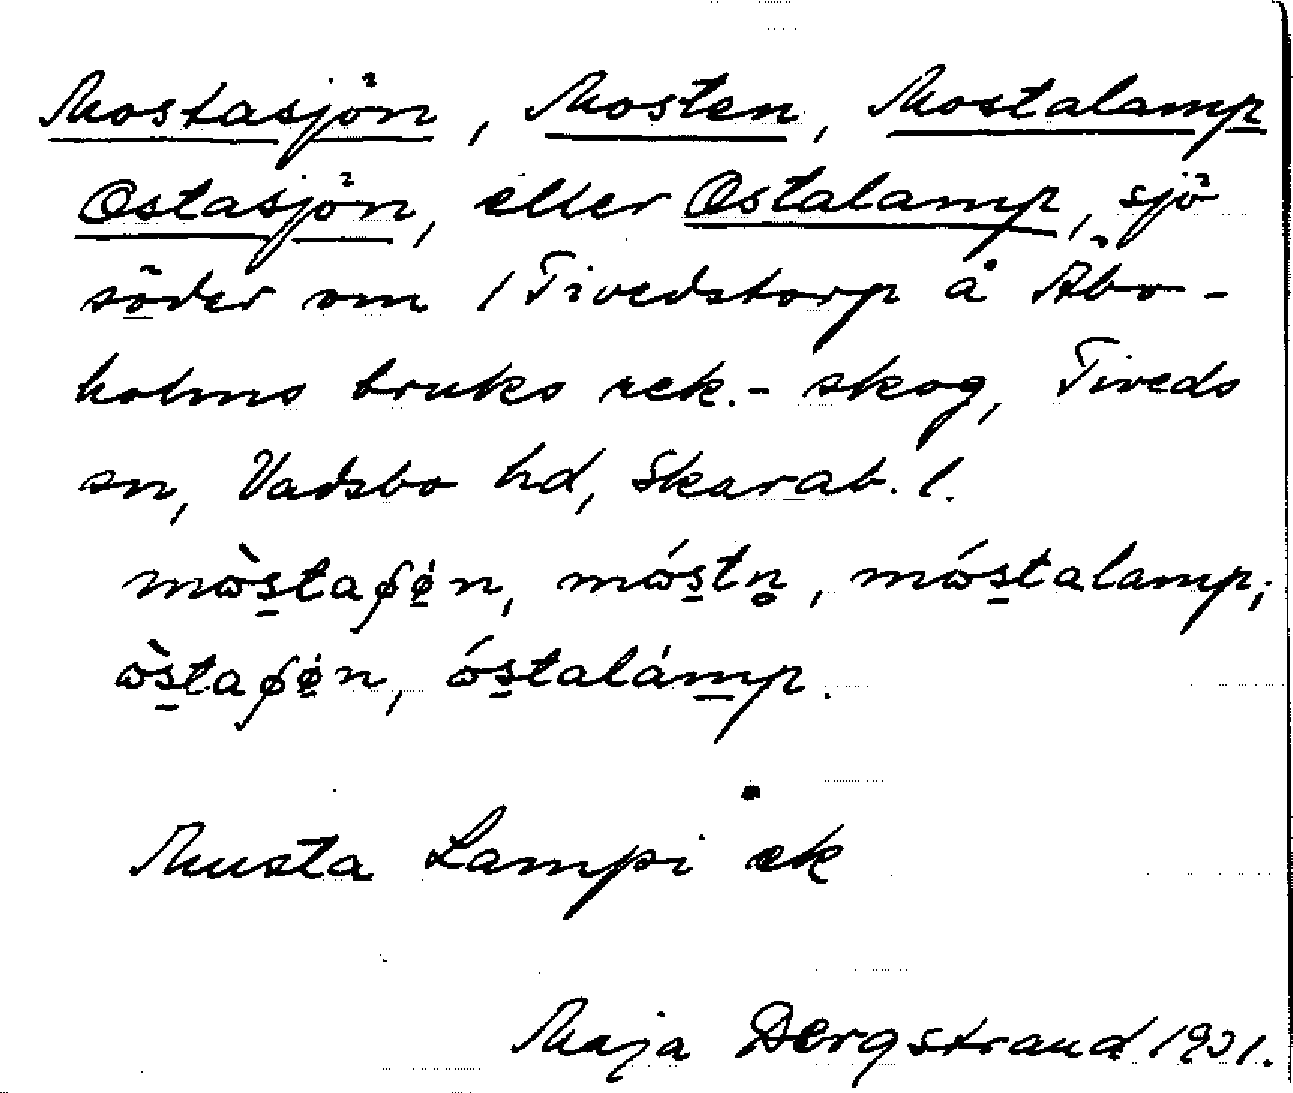 Mostasjön, Mosten, Mostalamp
Ostasjön, eller Ostalamp, sjö
söder om 1 Tivedstorp å Åbo-
holms bruks rek.- skog, Tiveds
sn, Vadsbo hd, Skarab. l.
mὼs̲taʃø̇n, mώs̲tn̥, mώs̲talamp;
ὼs̲taʃø̇n, ώs̲talám̲p.
Musta Lampi ek
Maja Bergstrand 1931.